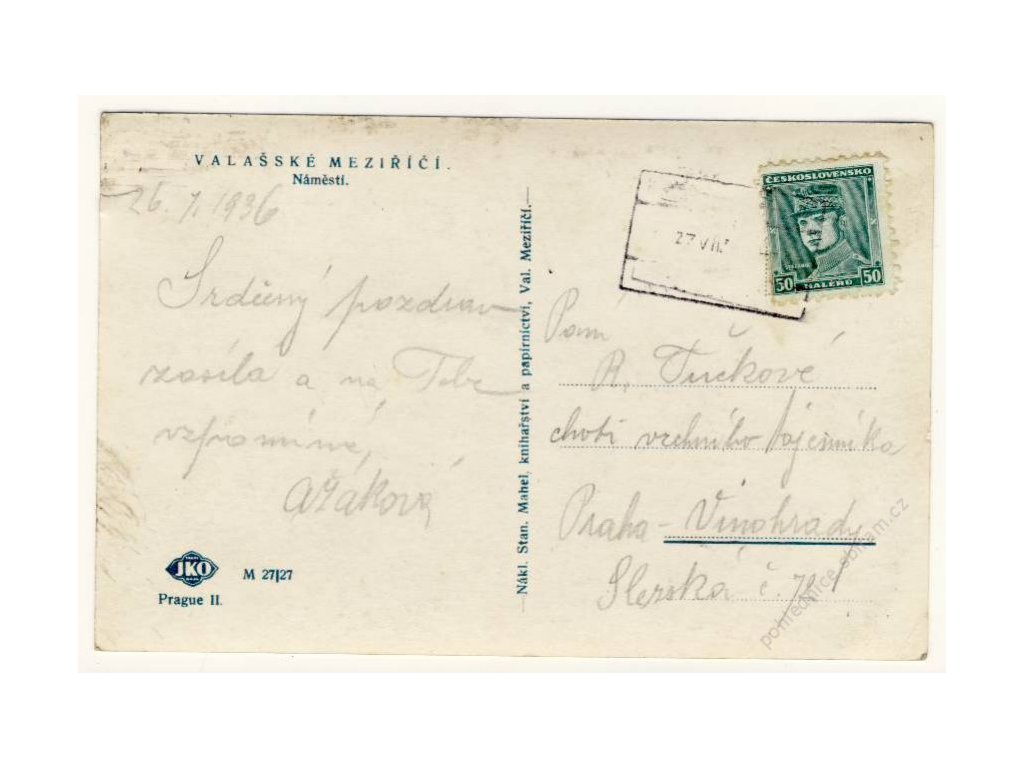 VALAŠSKÉ MEZIŘÍČÍ.
Náměstí.
26. 7. 1936
Srdečný pozdrav
zasílá a na Tebe
vzpomíná,
A Žáková
JKO
Prague II.
M 27|27
Nákl. Stan. Mahel, knihařství a papírnictví, Val. Meziříčí.
27 VII.
ČESKOSLOVENSKO
50 HALÉŘŮ 50
Paní
R. Tučková
choti vrchního
Praha - Vinohrady
Slezská č.
pohlednice.dumam.cz